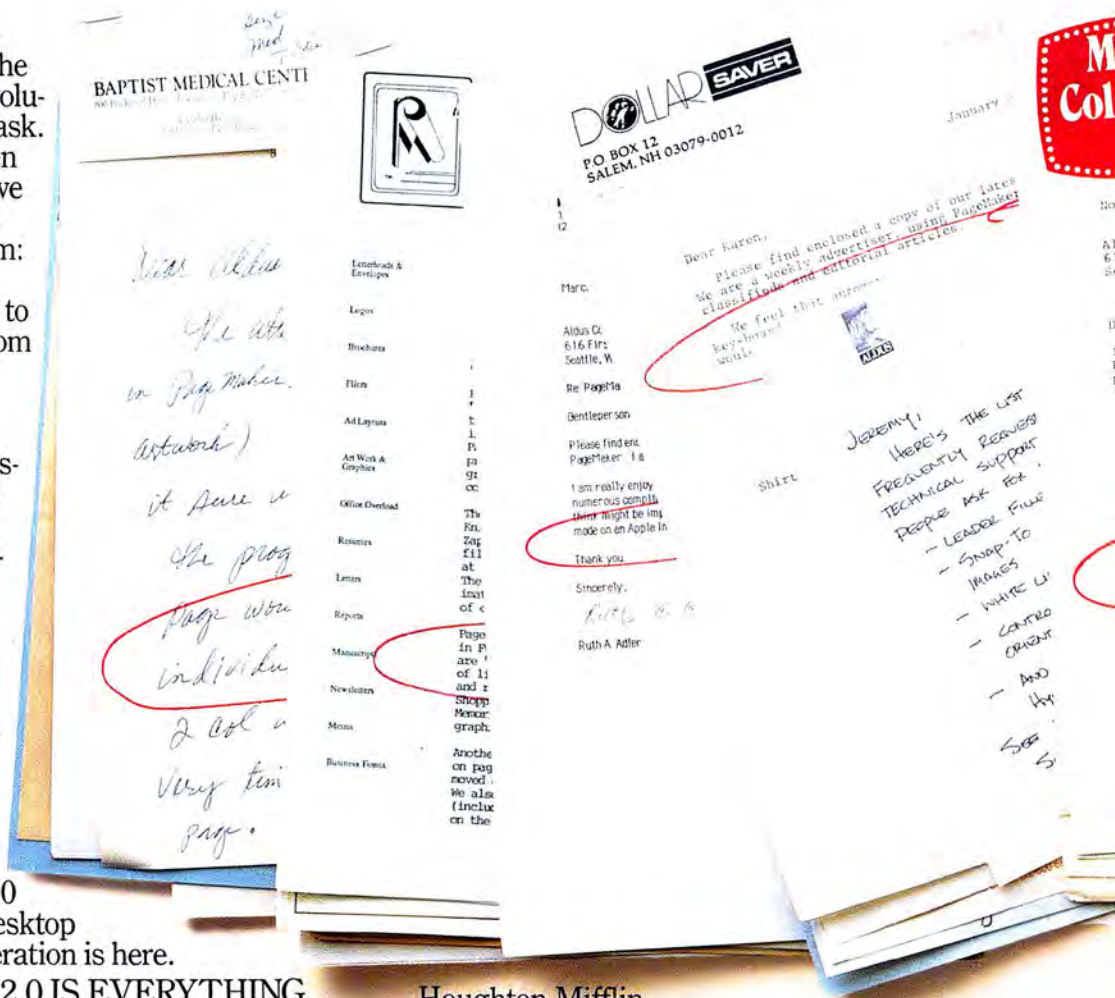 he
olu-
ask.
n
ve
m:
to
om
s-
0
esktop
eration is here.
2.0 IS EVERYTHING
Houghton Mifflin
BAPTIST MEDICAL CENTE
Dear Aldus
The atta
in PageMaker.
artwork)
it sure w
the prog
page wou
individu
2 col w
Very tim
page.
PM
Letterheads &
Envelopes
Logos
Brochures
Fliers
Ad Layouts
Art Work &
Graphics
Office Overload
Resumes
Letters
Reports
Manuscript
Newsletters
Menus
Business Forms
The
Kn
Zap
fil
at
The
inat
of c
Page
in P
are
of li
and r
Shopp
Memor
graph
Anothe
on pag
moved
We also
(includ
on the
Marc.
Aldus Co
616 Firs
Seattle, W
Re: PageMa
Gentleperson
Please find enc
PageMaker 1 a
I am really enjoy
numerous compli
think might be imp
mode on an Apple In
Thank you.
Sincerely,
Ruth A. Adler
DOLLAR SAVER
P.O. BOX 12
SALEM, NH 03079-0012
January
Dear Karen,
Please find enclosed a copy of our lates
We are a weekly advertiser, using PageMaker
classifieds and editorial articles.
We feel that
key-board
woul
ALDUS
Shirt
JEREMY,
HERE'S THE LIST
FREQUENTLY REQUES
TECHNICAL SUPPORT
PEOPLE ASK FOR
- LEADER FILLE
- SNAP-TO
IMAGES
- WHITE LI
- CONTRO
ORIENT
- AND
HY
SEE
S
M
Col
No
Al
6
S